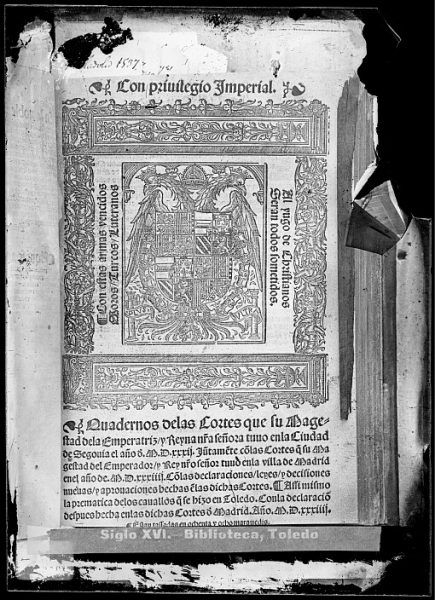 1537
Con priuilegio Imperial.
Con estas armas vencidos
Moros/Turcos/Luteranos
Al yugo de Christianos
Seran todos sometidos.
Quadernos delas Cortes que su Mage-
stad dela Emperatriz/y Reyna nr̃a señora tuuo enla Ciudad
de Segouia el año ð. M.D.xxxij. Jũtamẽte cõlas Cortes q̃ su Ma
gestad del Emperador/y Rey nr̃o señor tuuo enla villa de Madrid
en el año de. M.D.xxxiiij. Cõlas declaraciones/leyes/y decisiones
nueuas/y aprouaciones hechas ẽlas dichas Cortes. ¶ Assi mismo
la prematica delos caualłos q̃ se hizo en Toledo. Conla declaraciõ
despues hecha enlas dichas Cortes ð Madrid. Año. M.D.xxxiiij.
¶ Estan tassadas en ochenta y ocho marauedis.
Siglo XVI.- Biblioteca, Toledo